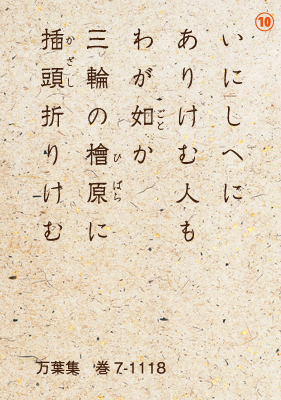 ⑩
いにしへに
ありけむ人も
わが如か
三輪の檜原に
挿頭折りけむ
万葉集 巻7-1118